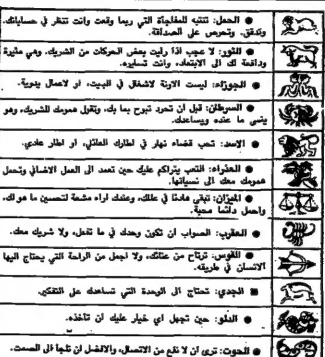 ● الحمل: تنتبه للمفاجأة التي ربما وقعت وانت تنظر في حساباتك.
وتدقق. وتحرص على الصداقة.
● الثور: لا عجب اذا رايت بعض الحركات من الشريك. وهي مثيرة
ودافعة لك الى الابتعاد، وانت تسايره.
● الجوزاء: ليست الاونة لاشغال في البيت، او لاعمال يدوية.
● السرطان: قبل ان تحرد تبوح بما بك، وتقول همومك للشريك، وهو
ينسى ما عنده ويساعدك.
● الاسد: تحب قضاء نهار في اطارك العائلي، او اطار عادي.
● العذراء: التعب يتراكم عليك حين تعمد الى العمل الاضافي وتحمل
همومك معك الى نسيانها.
● الميزان: تبقى هادئا في عقلك، وعندك اراء مشعة لتحسين ما هو لك،
واحمل دائما محبة.
● العقرب: الصواب ان تكون وحدك في ما تفعل، ولا شريك معك.
● القوس: ترتاح من عنائك، ولا اجمل من الراحة التي يحتاج اليها
الانسان في طريقه.
● الجدي: تحتاج الى الوحدة التي تساعدك على التفكير.
● الدلو: حين تجهل اي خيار عليك ان تاخذه.
● الحوت: ترى ان لا نفع من الاتصال، والافضل ان تلجأ الى الصمت.